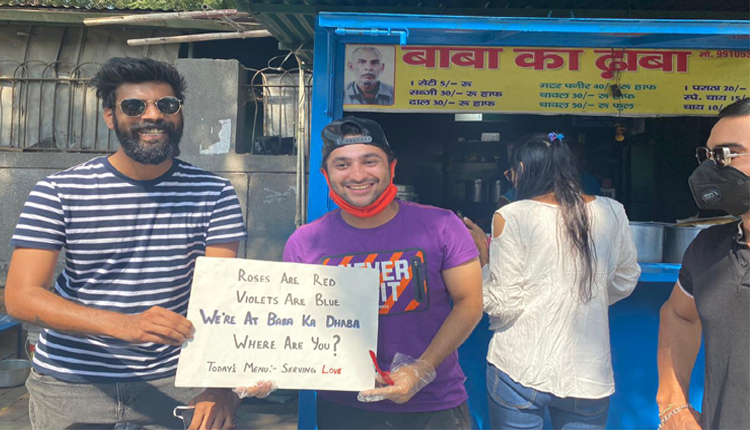 बाबा का ढाबा
मो. 9910
1 रोटी 5/- रू
सब्जी 30/- रू हाफ
दाल 30/- रू हाफ
मटर पनीर 40/- रू हाफ
चावल 30/- रू हाफ
चावल 50/- रू फुल
1 पराठा 20/-
स्पे. चाय 15/-
चाय 10/-
ROSES ARE RED
VIOLETS ARE BLUE
WE'RE AT BABA KA DHABA
WHERE ARE YOU?
TODAY'S MENU:- SERVING LOVE